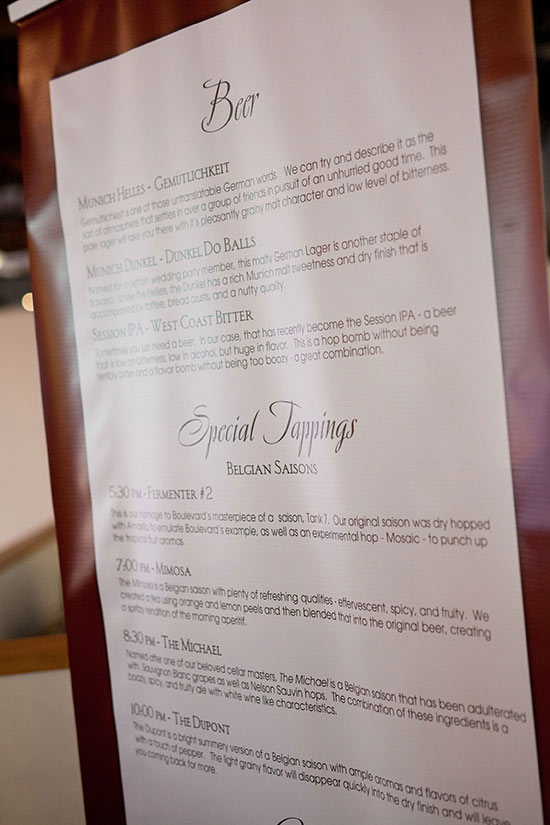 Beer
MUNICH HELLES - GEMÜTLICHKEIT
Gemütlichkeit is one of those untranslatable German words. We can try and describe it as the
sort of atmosphere that settles in over a group of friends in pursuit of an unhurried good time. This
pale lager will take you there with it's pleasantly grainy malt character and low level of bitterness.
MUNICH DUNKEL - DUNKEL DO BALLS
Named for a certain wedding party member, this malty German Lager is another staple of
Bavaria. Unlike the Helles, the Dunkel has a rich Munich malt sweetness and dry finish that is
accompanied by toffee, bread crusts, and a nutty quality.
SESSION IPA - WEST COAST BITTER
Sometimes you just need a beer. In our case, that has recently become the Session IPA - a beer
that is low on bitterness, low in alcohol, but huge in flavor. This is a hop bomb without being
terribly bitter and a flavor bomb without being too boozy - a great combination.
Special Tappings
BELGIAN SAISONS
5:30 PM - FERMENTER #2
This is our homage to Boulevard's masterpiece of a saison, Tank7. Our original saison was dry hopped
with Amarillo to emulate Boulevard's example, as well as an experimental hop - Mosaic - to punch up
the tropical fruit aromas.
7:00 PM - MIMOSA
The Mimosa is a Belgian saison with plenty of refreshing qualities - effervescent, spicy, and fruity. We
created a tea using orange and lemon peels and then blended that into the original beer, creating
a spritzy rendition of the morning aperitif.
8:30 PM - THE MICHAEL
Named after one of our beloved cellar masters, The Michael is a Belgian saison that has been adulterated
with Sauvignon Blanc grapes as well as Nelson Sauvin hops. The combination of these ingredients is a
boozy, spicy, and fruity ale with white wine like characteristics.
10:00 PM - THE DUPONT
The Dupont is a bright summery version of a Belgian saison with ample aromas and flavors of citrus
with a touch of pepper. The light grainy flavor will disappear quickly into the dry finish and will leave
you coming back for more.